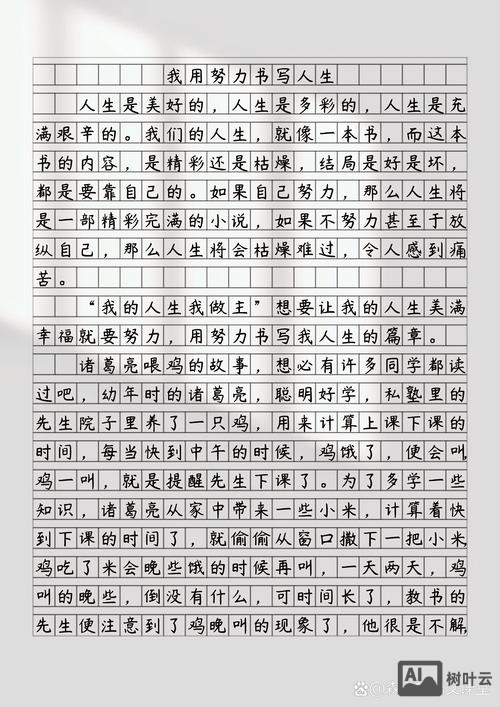 我用努力书写人生
人生是美好的，人生是多彩的，人生是充
满艰辛的。我们的人生，就像一本书，而这本
书的内容，是精彩还是枯燥，结局是好是坏，
都是要靠自己的。如果自己努力，那么人生将
是一部精彩完满的小说，如果不努力甚至于放
纵自己，那么人生将会枯燥难过，令人感到痛
苦。
“我的人生我做主”想要让我的人生美满
幸福就要努力，用努力书写我人生的篇章。
诸葛亮喂鸡的故事，想必有许多同学都读
过吧，幼年时的诸葛亮，聪明好学，私塾里的
先生院子里养了一只鸡，用来计算上课下课的
时间，每当快到中午的时候，鸡饿了，便会叫，
鸡一叫，就是提醒先生下课了。为了多学一些
知识，诸葛亮从家中带来一些小米，计算着快
到下课的时间了，就偷偷从窗口撒下一把小米，
鸡吃了米会晚些饿的时候再叫，一天两天，鸡
叫的晚些，倒没有什么，可时间长了，教书的
先生便注意到了鸡晚叫的现象了，他很是不解，
AI
树叶云